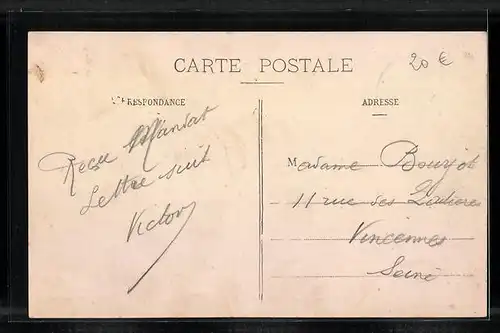 CARTE POSTALE
20 €
RESPONDANCE
ADRESSE
Reçu Mandat
Lettre suit
Victor
Madame Bourjot
11 rue des
Vincennes
Seine